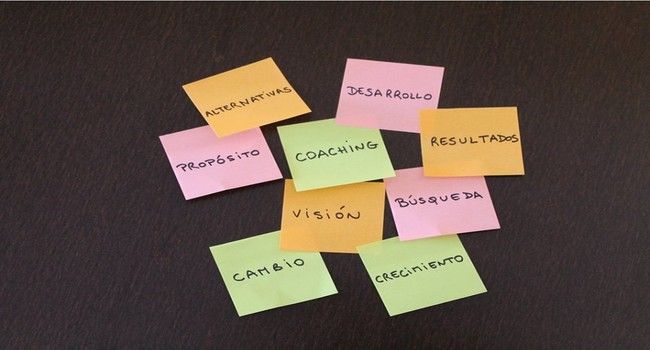 ALTERNATIVAS
DESARROLLO
PROPÓSITO
COACHING
RESULTADOS
VISIÓN
BÚSQUEDA
CAMBIO
CRECIMIENTO